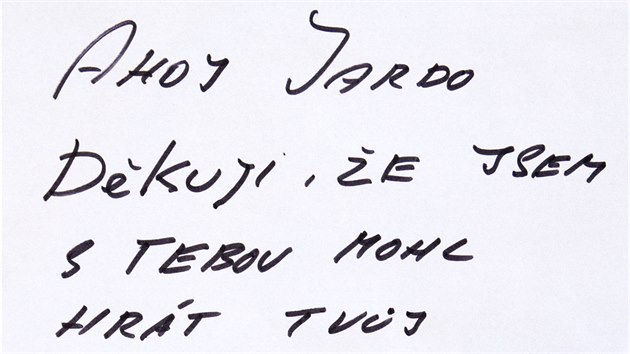 AHOJ JARDO
Děkuji, ŽE JSEM
S TEBOU MOHL
HRÁT TVŮJ